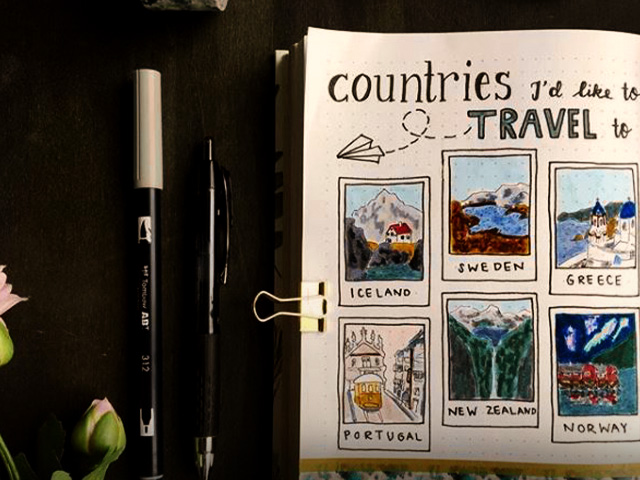 countries I'd like to
TRAVEL to
ICELAND
SWEDEN
GREECE
PORTUGAL
NEW ZEALAND
NORWAY
Tombow ABT
312